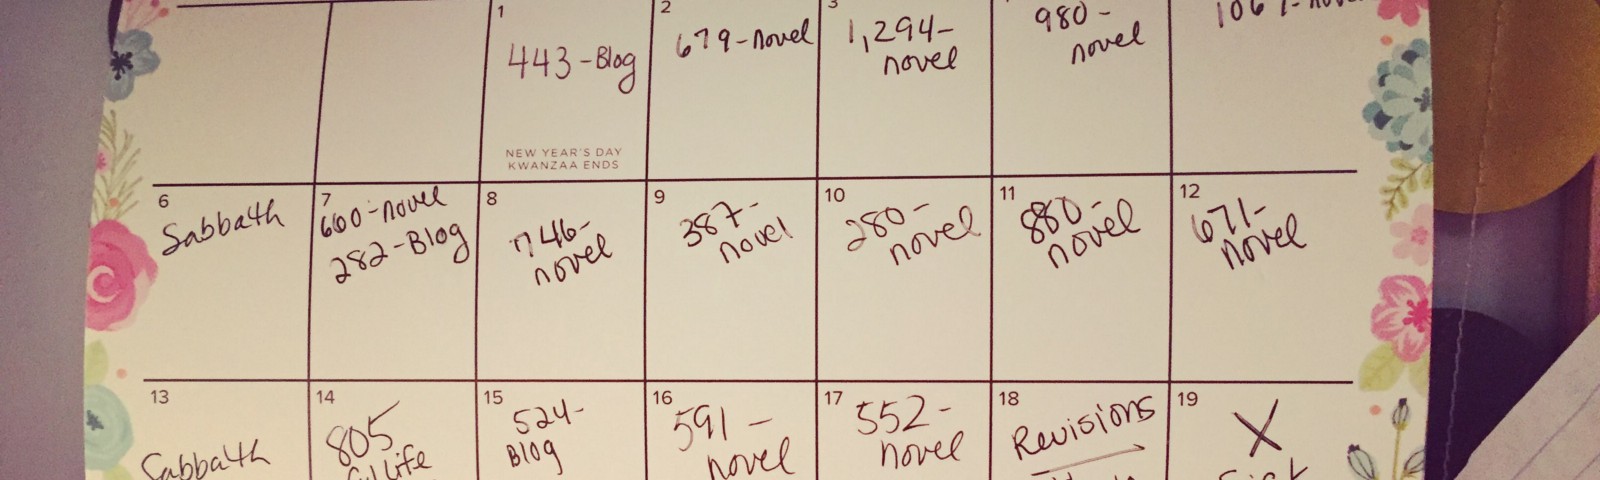 1
443-Blog
NEW YEAR'S DAY
KWANZAA ENDS
2
679-novel
3
1,294-
novel
980-
novel
1067-novel
6
Sabbath
7
660-novel
282-Blog
8
746-
novel
9
387-
novel
10
280-
novel
11
880-
novel
12
671-
novel
13
Sabbath
14
805
Life
15
524-
Blog
16
591-
novel
17
552-
novel
18
Revisions
19
X